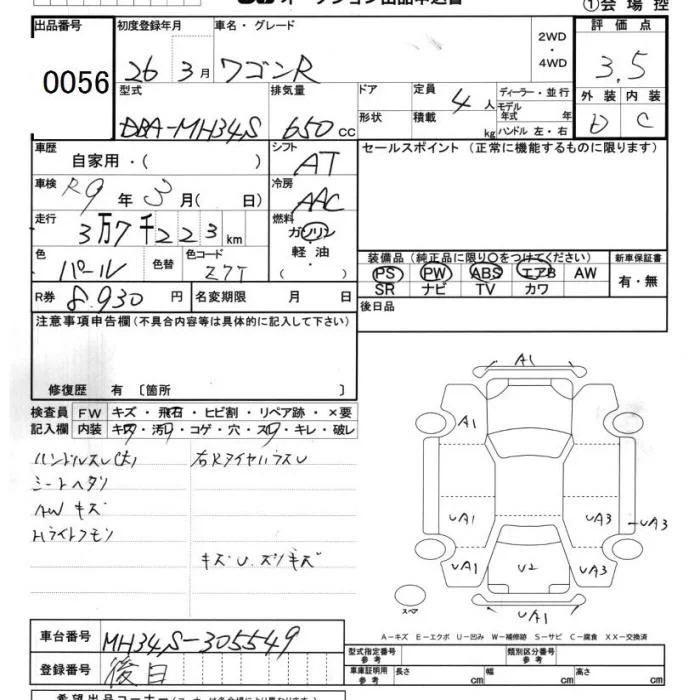 ①会 場 控
出品番号 初度登録年月 車名・グレード 評 価 点
0056 26 3月 ワゴンR 2WD ・ 4WD 3.5
型式 排気量 ドア 定員 4人 ディーラー・並行 外 装 内 装
DBA-MH34S 650cc 形状 積載 kg モデル年式 年 D C
ハンドル 左・右
車歴 シフト セールスポイント(正常に機能するものに限ります)
自家用・( ) AT
車検 R9年 3月( 日) 冷房 AAC
走行 3万7千223km 燃料 ガソリン
軽 油
・( )
色 パール 色替 色コード Z7T
装備品(純正品に限り○をつけてください) 新車保証書
PS PW ABS エアB AW 有・無
SR ナビ TV カワ
R券 8.930円 名変期限 月 日 後日品
注意事項申告欄(不具合内容等は具体的に記入して下さい)
修復歴 有〔箇所 〕
検査員 FW キズ・飛石・ヒビ割・リペア跡・×要
記入欄 内装 キズ・汚レ・コゲ・穴・スレ・キレ・破レ
ハンドルスレ(大) 右Rタイヤハウス U
シートヘタリ
AWキズ
Hライトクモリ
キズ U. ズリキズ
A1
A1
UA1 UA3 UA3
UA1 U2 UA3
スペア UA1
A-キズ E-エクボ U-凹み W-補修跡 S-サビ C-腐食 XX-交換済
車台番号 MH34S-305549
型式指定番号 参 考 類別区分番号 参 考
登録番号 後日
車庫証明用 参 考 長さ cm 幅 cm 高さ cm